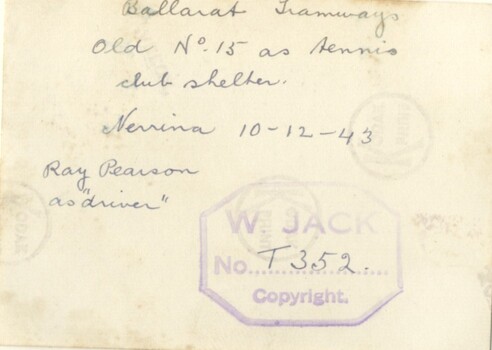 Ballarat Tramways
Old No. 15 as tennis
club shelter.
Nerrina 10-12-43
Ray Pearson
as "driver"
W JACK
No. T352.
Copyright.
KODAK